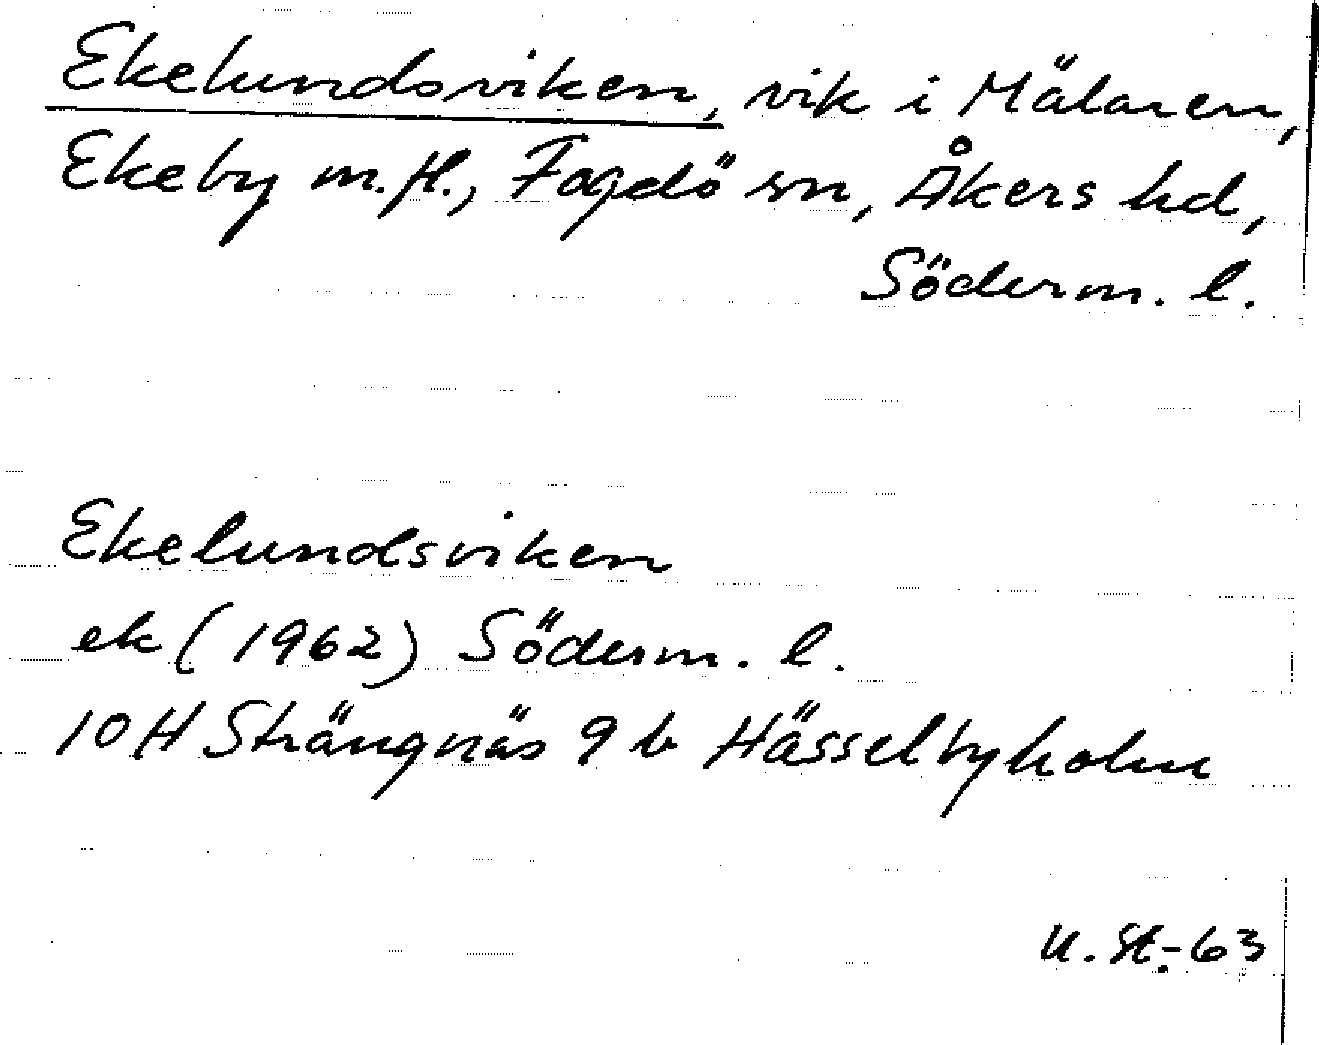 Ekelundsviken, vik i Mälaren,
Ekeby m.fl., Fogdö sn, Åkers hd,
Söderm. l.
Ekelundsviken
ek (1962) Söderm. l.
10 H Strängnäs 9 b Hässelbyholm
U. St.-63